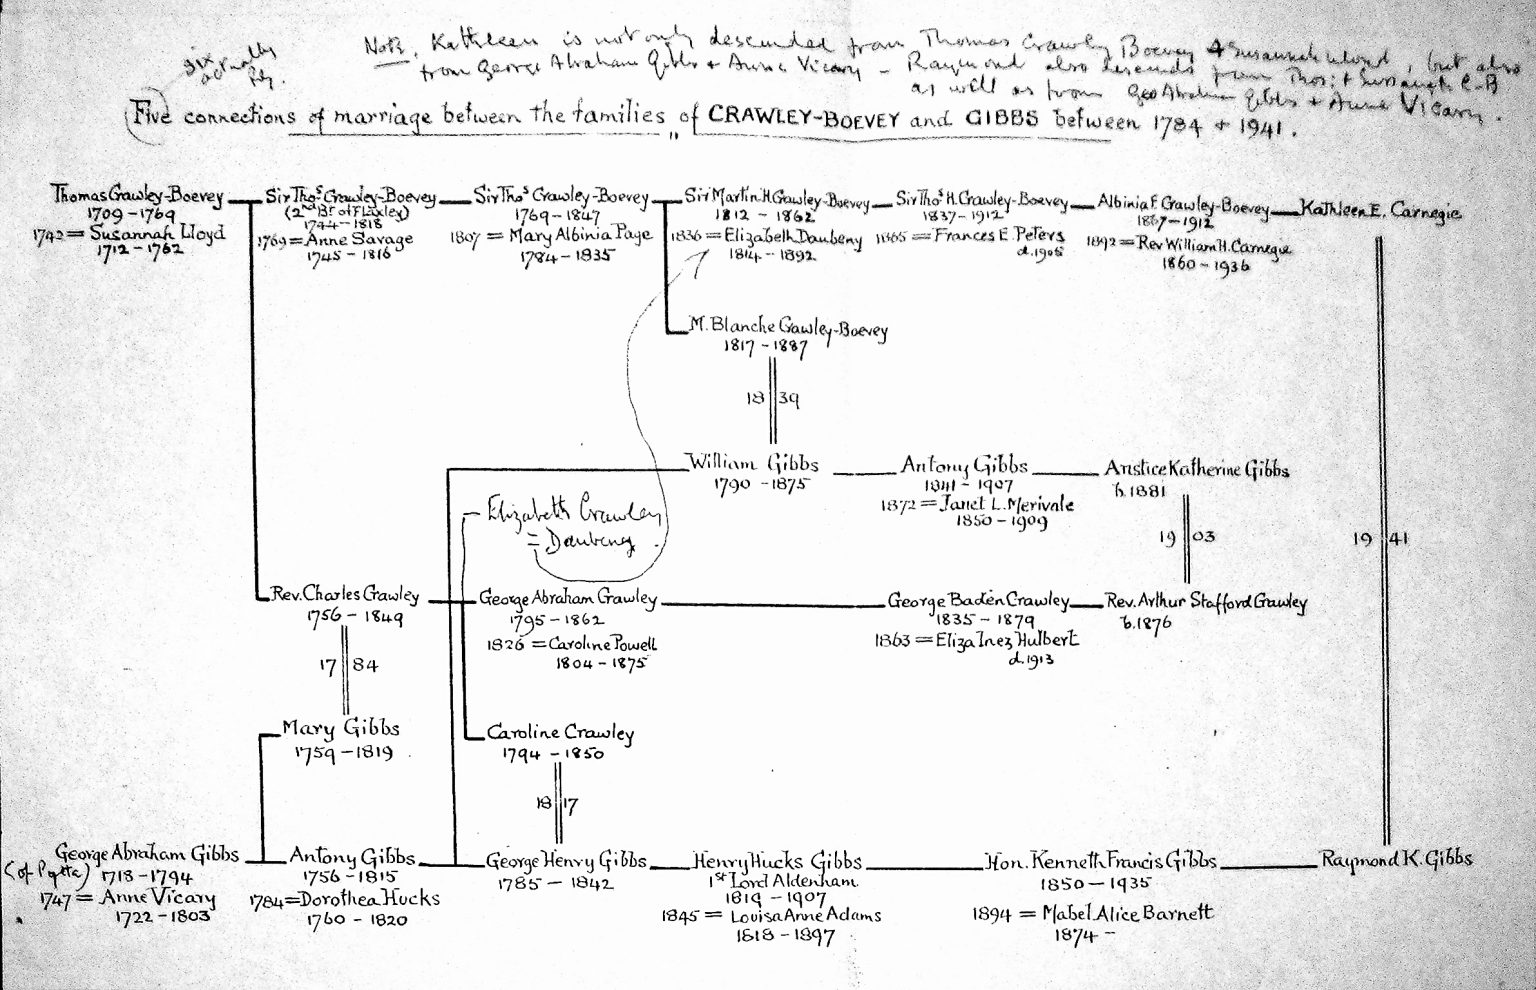 six
actually
Note. Kathleen is not only descended from Thomas Crawley Boevey & Susannah Lloyd, but also
from George Abraham Gibbs & Anne Vicary – Raymond also descends from Thos: & Susannah C-B
as well as from Geo Abraham Gibbs & Anne Vicary.
Five connections of marriage between the families of CRAWLEY-BOEVEY and GIBBS between 1784 & 1941.
Thomas Crawley-Boevey
1709-1769
1742 = Susannah Lloyd
1712-1762
Sir Thos Crawley-Boevey
(2nd Bt of Flaxley)
1744-1818
1769 = Anne Savage
1745-1816
Sir Thos Crawley-Boevey
1769-1847
1807 = Mary Albinia Page
1784-1835
Sir Martin H. Crawley-Boevey
1812-1862
1836 = Elizabeth Daubeny
1814-1892
Sir Thos H. Crawley-Boevey
1837-1912
1865 = Frances E. Peters
d.1905
Albinia F. Crawley-Boevey
1867-1912
1892 = Rev William H. Carnegie
1860-1936
Kathleen E. Carnegie
M. Blanche Crawley-Boevey
1817-1887
18 39
William Gibbs
1790-1875
Antony Gibbs
1841-1907
1872 = Janet L. Merivale
1850-1909
Anstice Katherine Gibbs
b.1881
19 03
19 41
Elizabeth Crawley
= Daubeny
Rev. Charles Crawley
1756-1849
17 84
George Abraham Crawley
1795-1862
1826 = Caroline Powell
1804-1875
George Baden Crawley
1835-1879
1863 = Eliza Inez Hulbert
d.1913
Rev. Arthur Stafford Crawley
b.1876
Mary Gibbs
1759-1819
Caroline Crawley
1794-1850
18 17
George Abraham Gibbs
1718-1794
1747 = Anne Vicary
1722-1803
Antony Gibbs
1756-1815
1784 = Dorothea Hucks
1760-1820
George Henry Gibbs
1785-1842
Henry Hucks Gibbs
1st Lord Aldenham
1819-1907
1845 = Louisa Anne Adams
1818-1897
Hon. Kenneth Francis Gibbs
1850-1935
1894 = Mabel Alice Barnett
1874-
Raymond K. Gibbs